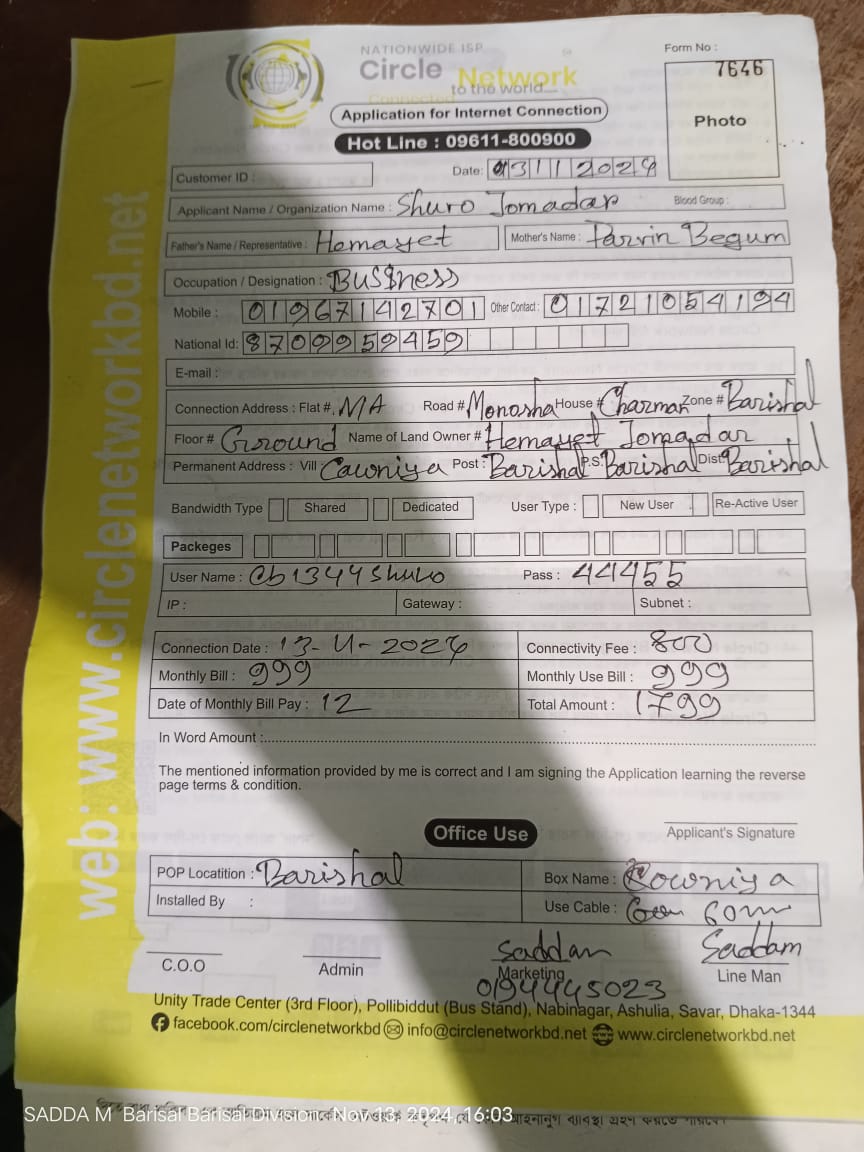 NATIONWIDE ISP
Circle Network
Connected to the world
Form No :
7646
Photo
Application for Internet Connection
Hot Line : 09611-800900
Customer ID :
Date: 13112024
Applicant Name / Organization Name : Shuro Jomadar Blood Group :
Father's Name / Representative : Hemayet Mother's Name : Parvin Begum
Occupation / Designation : Bussness
Mobile : 01967142701 Other Contact : 01721054194
National Id: 8709959459
E-mail :
Connection Address : Flat # MA Road # Monasha House # Charman Zone # Barishal
Floor # Ground Name of Land Owner # Hemayet Jomadar
Permanent Address : Vill Cawniya Post : Barishal P.S: Barishal Dist: Barishal
Bandwidth Type Shared Dedicated User Type : New User Re-Active User
Packeges
User Name : Cb1344Shuro Pass : 44455
IP : Gateway : Subnet :
Connection Date : 13-11-2024 Connectivity Fee : 800
Monthly Bill : 999 Monthly Use Bill : 999
Date of Monthly Bill Pay : 12 Total Amount : 1799
In Word Amount :
The mentioned information provided by me is correct and I am signing the Application learning the reverse
page terms & condition.
Office Use
Applicant's Signature
POP Locatition : Barishal Box Name : Rowniya
Installed By : Use Cable : 60m
Saddam Saddam
C.O.O Admin Marketing Line Man
0194445023
Unity Trade Center (3rd Floor), Pollibiddut (Bus Stand), Nabinagar, Ashulia, Savar, Dhaka-1344
facebook.com/circlenetworkbd info@circlenetworkbd.net www.circlenetworkbd.net
web: www.circlenetworkbd.net
SADDA M Barisal Barisal Division Nov 13, 2024, 16:03